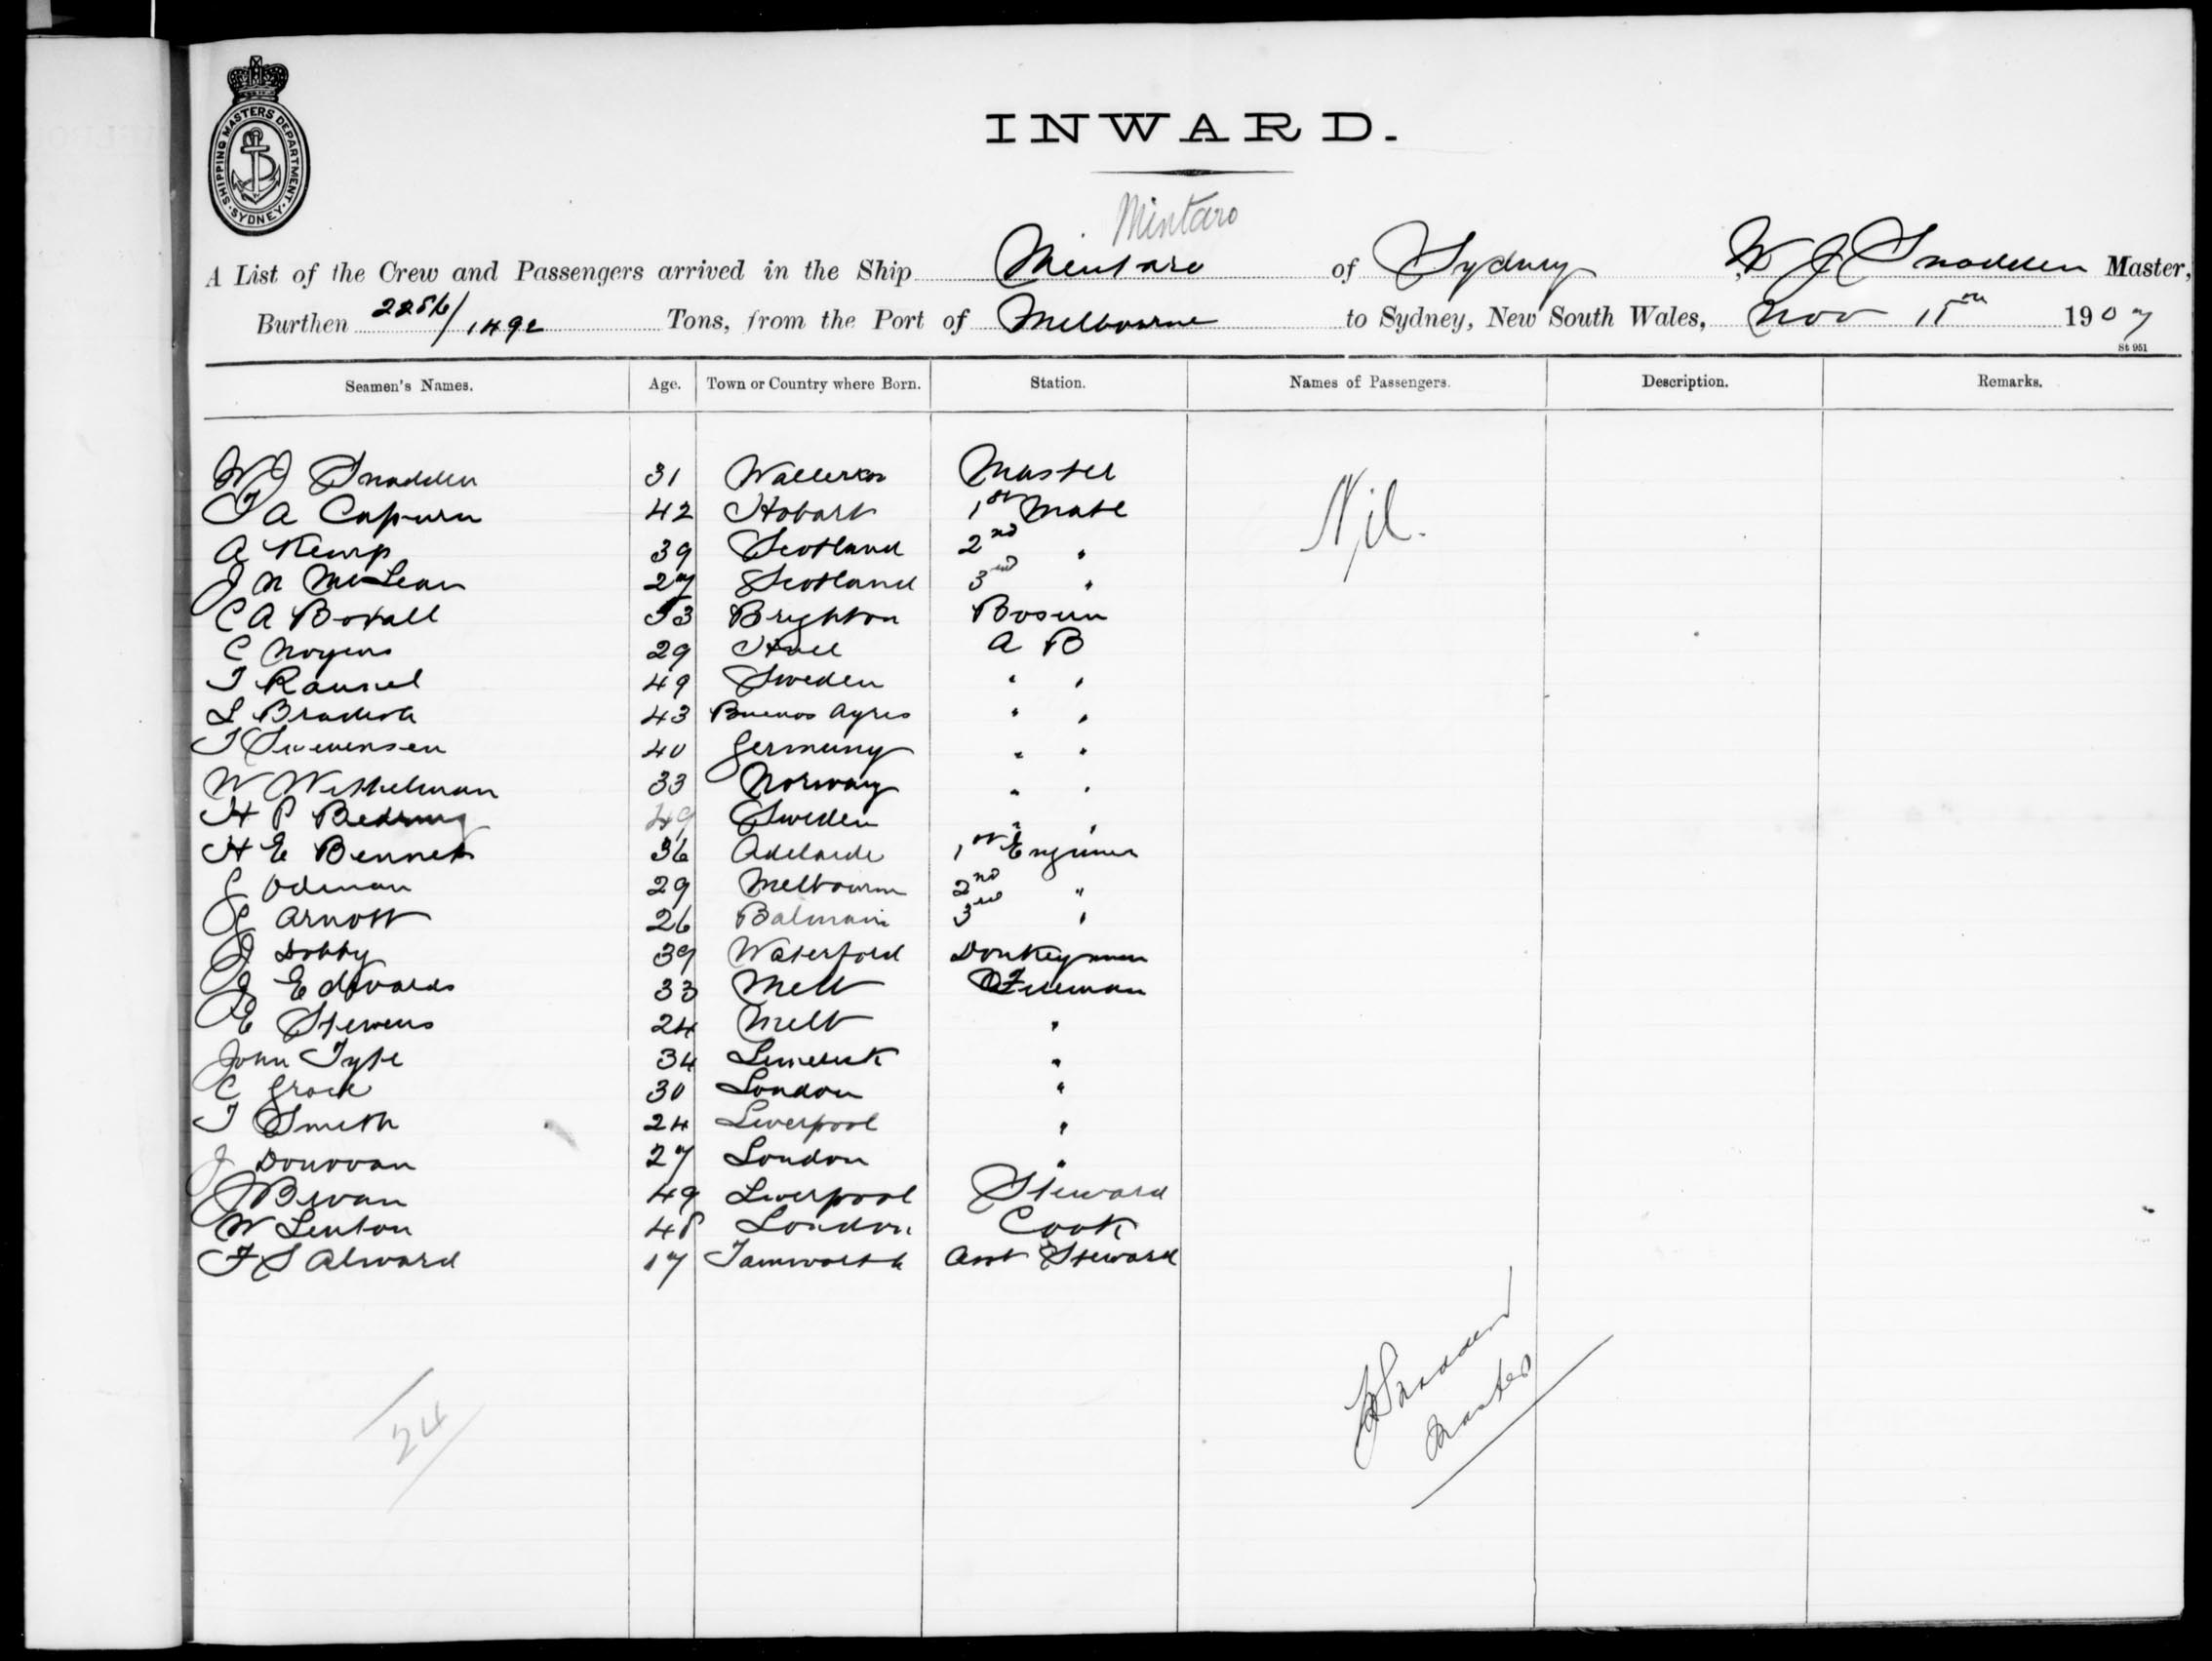 SHIPPING MASTERS DEPARTMENT
SYDNEY
INWARD.
Mintaro
A List of the Crew and Passengers arrived in the Ship Mintaro of Sydney, W J Snadden Master,
Burthen 2286/1492 Tons, from the Port of Melbourne to Sydney, New South Wales, Nov 15th 1907
St 951
Seamen's Names. Age. Town or Country where Born. Station. Names of Passengers. Description. Remarks.
W J Snadden 31 Wallaroo Master Nil.
T A Capurn 42 Hobart 1st Mate
A Kemp 39 Scotland 2nd "
J N McLean 27 Scotland 3rd "
C A Boxall 53 Brighton Bosun
C Noyens 29 Hull A B
T 49 Sweden " "
L 43 Buenos Ayres " "
T 40 Germany " "
W 33 Norway " "
H P 49 Sweden " "
H E Bennet 36 Adelaide 1st Engineer
J Odman 29 Melbourne 2nd "
J Arnott 26 Balmain 3rd "
J Dobby 39 Waterford Donkeyman
J Edwards 33 Melb Fireman
E Stevens 24 Melb "
John 34 Limerick "
C 30 London "
T Smith 24 Liverpool "
J Donovan 27 London "
J Bevan 49 Liverpool Steward
W Lenton 48 London Cook
F S Alward 17 Tamworth Asst Steward
24
WJSnadden
Master